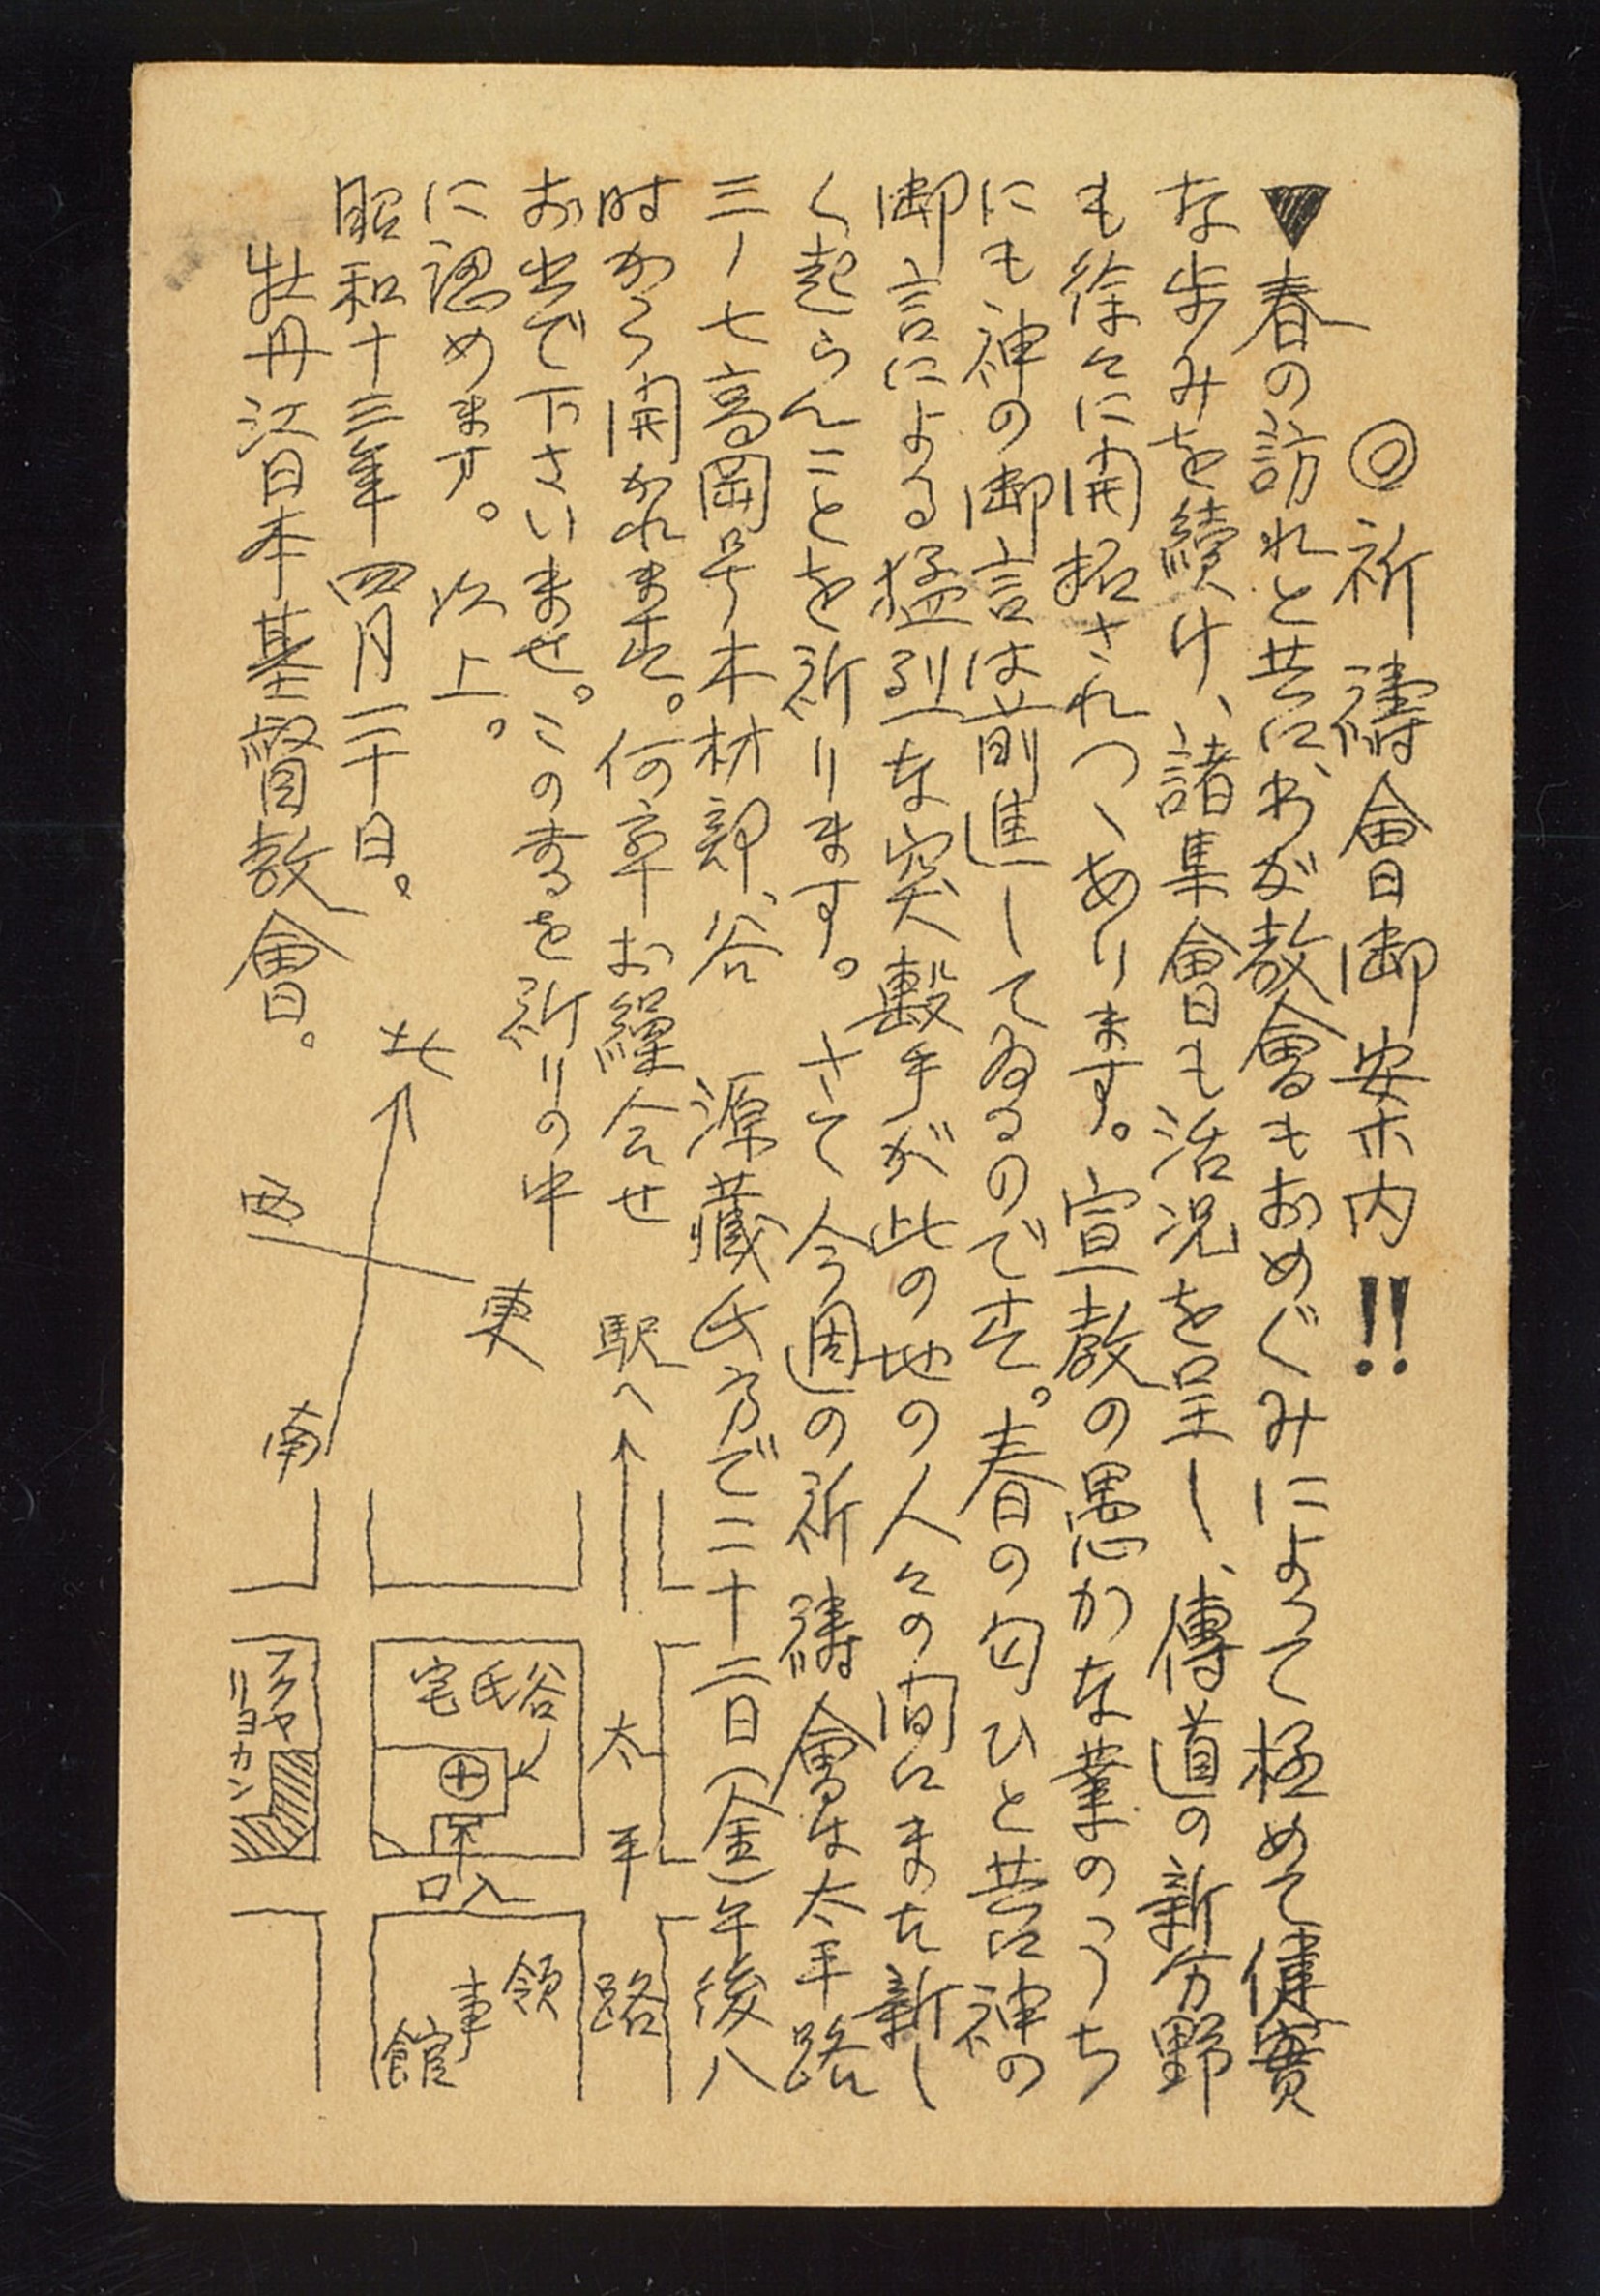 ◎祈禱會御安内!!
▼春の訪れと共に、わが教會もおめぐみによって極めて健實
な歩みを續け、諸集會も活況を呈し、傳道の新分野
も徐々に開拓されつゝあります。宣教の愚かな業のうち
にも神の御言は前進してゐるのです。春の匂ひと共に神の
御言による猛烈な突擊手が此の地の人々の間にまた新し
く起らんことを祈ります。さて今週の祈禱會は太平路
三ノ七高岡号木材部、谷 源藏氏方で二十二日(金)午後八
時から開かれます。何卒お繰合せ
お出で下さいませ。このするを祈りの中
に認めます。以上。
昭和十三年四月二十日。
牡丹江日本基督教會。
北
西
東
南
駅へ
太平路
谷氏宅
入口
領事館
フクヤ
リヨカン